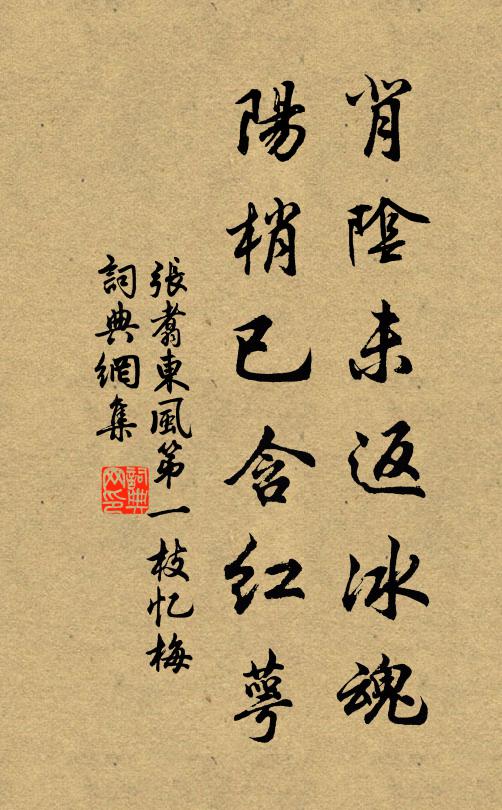 肖陰未返冰魂
陽梢已含紅萼
張翥東風第一枝忆梅
詞典網集
詞典網印